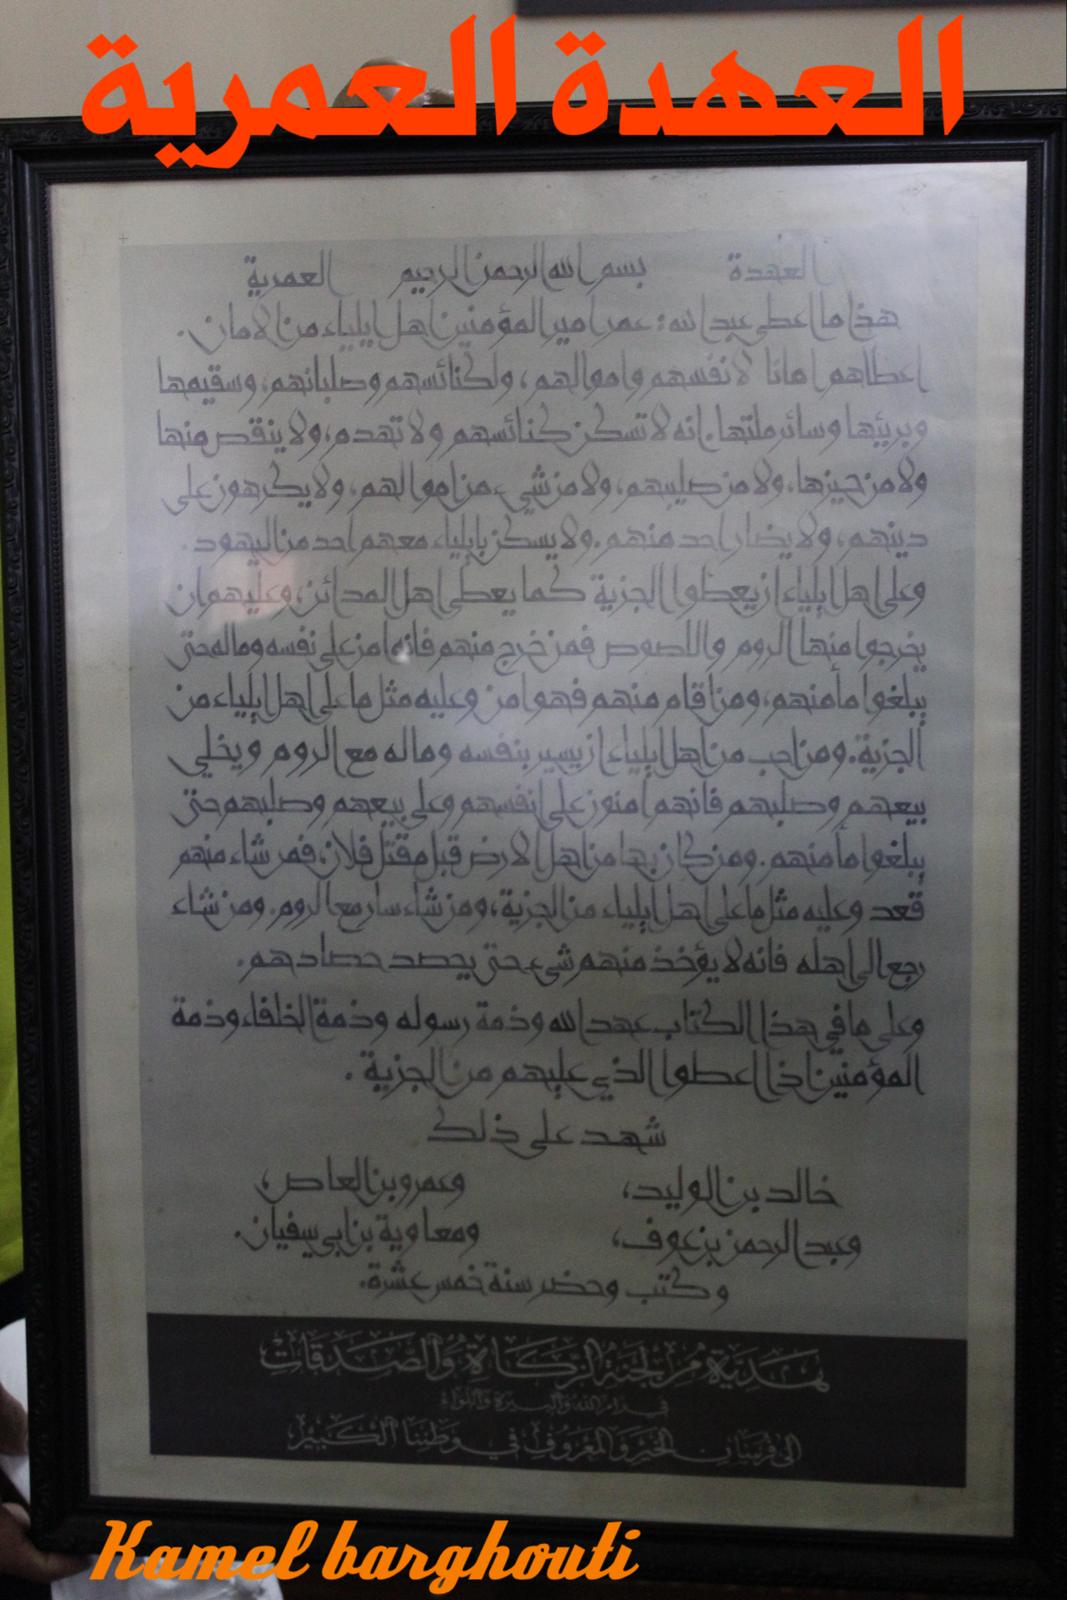 العهدة العمرية
العهدة بسم الله الرحمن الرحيم العمرية
هذا ما اعطى عبد الله: عمر امير المؤمنين اهل ايلياء من الامان.
اعطاهم امانا لانفسهم واموالهم، ولكنائسهم وصلبانهم، وسقيمها
وبريئها وسائر ملتها. انه لا تسكن كنائسهم ولا تهدم، ولا ينقص منها
ولا من حيزها، ولا من صليبهم، ولا من شيء من اموالهم، ولا يكرهون على
دينهم، ولا يضار احد منهم. ولا يسكن بايلياء معهم احد من اليهود.
وعلى اهل ايلياء ان يعطوا الجزية كما يعطى اهل المدائن، وعليهم ان
يخرجوا منها الروم واللصوص فمن خرج منهم فانه امن على نفسه وماله حتى
يبلغوا مأمنهم، ومن اقام منهم فهو امن وعليه مثل ما على اهل ايلياء من
الجزية. ومن احب من اهل ايلياء ان يسير بنفسه وماله مع الروم ويخلي
بيعهم وصلبهم فانهم امنون على انفسهم وعلى بيعهم وصلبهم حتى
يبلغوا مأمنهم. ومن كان بها من اهل الارض قبل مقتل فلان، فمن شاء منهم
قعد وعليه مثل ما على اهل ايلياء من الجزية، ومن شاء سار مع الروم. ومن شاء
رجع الى اهله فانه لا يؤخذ منهم شيء حتى يحصد حصادهم.
وعلى ما في هذا الكتاب عهد الله وذمة رسوله وذمة الخلفاء وذمة
المؤمنين اذا اعطوا الذي عليهم من الجزية.
شهد على ذلك
خالد بن الوليد، وعمرو بن العاص،
وعبد الرحمن بن عوف، ومعاوية بن ابي سفيان.
وكتب وحضر سنة خمس عشرة.
هَدية من لجنة الزكاة والصدقات
في رام الله والبيرة واللواء
الى فرسان الخير والمعروف في وطننا الكبير
Kamel barghouti